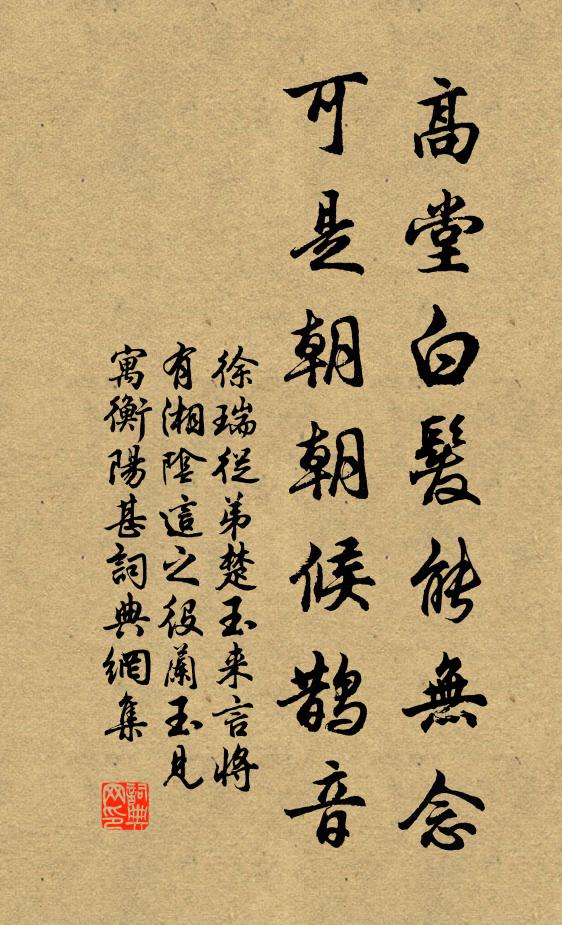 高堂白髮能無念
可是朝朝候鵲音
徐瑞從弟楚玉来言将
有湘陰這之役蘭玉見
寓衡陽甚詞典網集
詞典網印